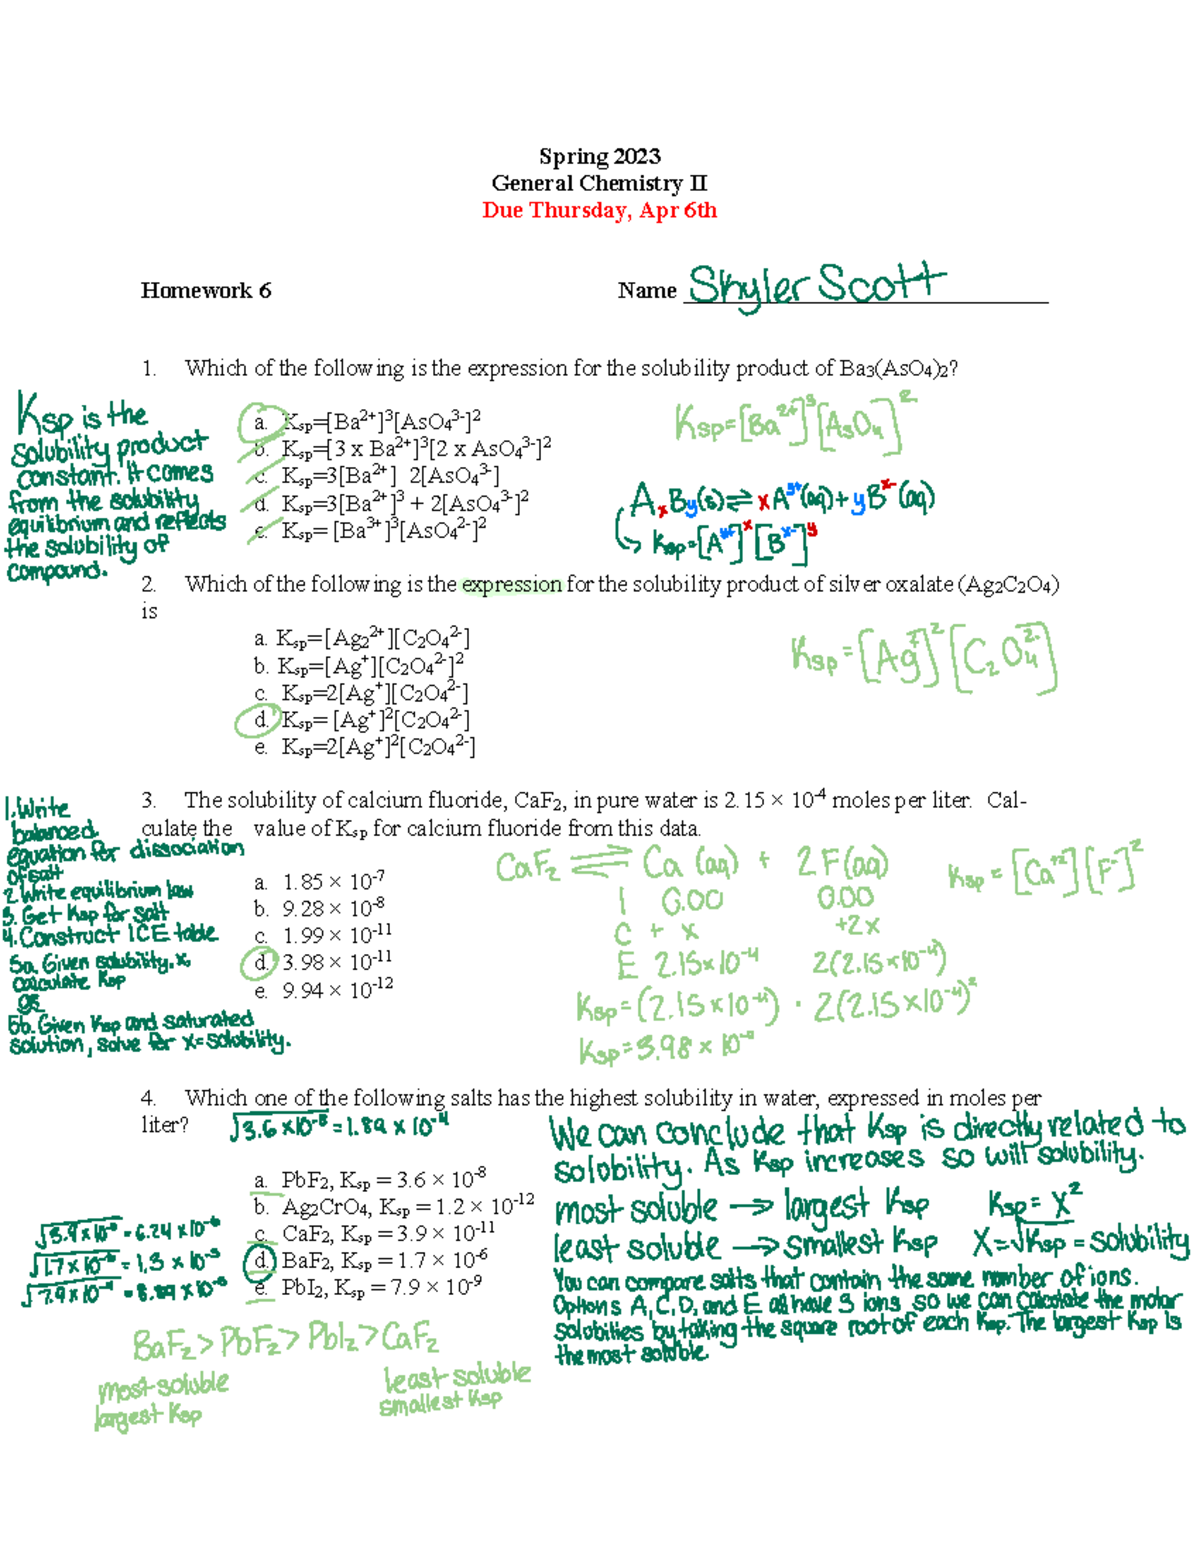 Spring 2023
General Chemistry II
Due Thursday, Apr 6th
Homework 6 Name Skyler Scott
1. Which of the following is the expression for the solubility product of Ba3(AsO4)2?
Ksp is the
solubility product
constant. It comes
from the solubility
equilibrium and reflects
the solubility of
compound.
a. Ksp=[Ba2+]3[AsO43-]2
b. Ksp=[3 x Ba2+]3[2 x AsO43-]2
c. Ksp=3[Ba2+] 2[AsO43-]
d. Ksp=3[Ba2+]3 + 2[AsO43-]2
e. Ksp= [Ba3+]3[AsO42-]2
Ksp=[Ba2+]3[AsO4]2
AxBy(s)⇌xAy+(aq)+yBx-(aq)
Ksp=[Ay+]x[Bx-]y
2. Which of the following is the expression for the solubility product of silver oxalate (Ag2C2O4)
is
a. Ksp=[Ag22+][C2O42-]
b. Ksp=[Ag+][C2O42-]2
c. Ksp=2[Ag+][C2O42-]
d. Ksp= [Ag+]2[C2O42-]
e. Ksp=2[Ag+]2[C2O42-]
Ksp=[Ag+]2[C2O42-]
3. The solubility of calcium fluoride, CaF2, in pure water is 2.15 × 10-4 moles per liter. Cal-
culate the value of Ksp for calcium fluoride from this data.
1.Write
balanced
equation for dissociation
of salt
2.Write equilibrium law
3. Get Ksp for salt
4.Construct ICE table
5a. Given solubility, x,
calculate Ksp
OR
5b. Given Ksp and saturated
solution, solve for x=solubility.
a. 1.85 × 10-7
b. 9.28 × 10-8
c. 1.99 × 10-11
d. 3.98 × 10-11
e. 9.94 × 10-12
CaF2 ⇌ Ca (aq) + 2F(aq)
Ksp = [Ca+2][F-]2
I 0.00 0.00
C + x +2x
E 2.15×10-4 2(2.15×10-4)
Ksp=(2.15×10-4) · 2(2.15×10-4)2
Ksp=3.98 × 10
4. Which one of the following salts has the highest solubility in water, expressed in moles per
liter?
√3.6×10-8=1.89×10-4
a. PbF2, Ksp = 3.6 × 10-8
b. Ag2CrO4, Ksp = 1.2 × 10-12
c. CaF2, Ksp = 3.9 × 10-11
d. BaF2, Ksp = 1.7 × 10-6
e. PbI2, Ksp = 7.9 × 10-9
= 6.24×10-6
√1.7×10-6 = 1.3 × 10-3
= 8.89×10
We can conclude that Ksp is directly related to
solubility. As Ksp increases so will solubility.
most soluble → largest Ksp Ksp=X2
least soluble → smallest Ksp X=√Ksp = solubility
You can compare salts that contain the same number of ions.
Options A, C, D, and E all have 3 ions, so we can calculate the molar
solubilities by taking the square root of each Ksp. The largest Ksp is
the most soluble.
BaF2>PbF2>PbI2>CaF2
most soluble least soluble
largest Ksp smallest Ksp